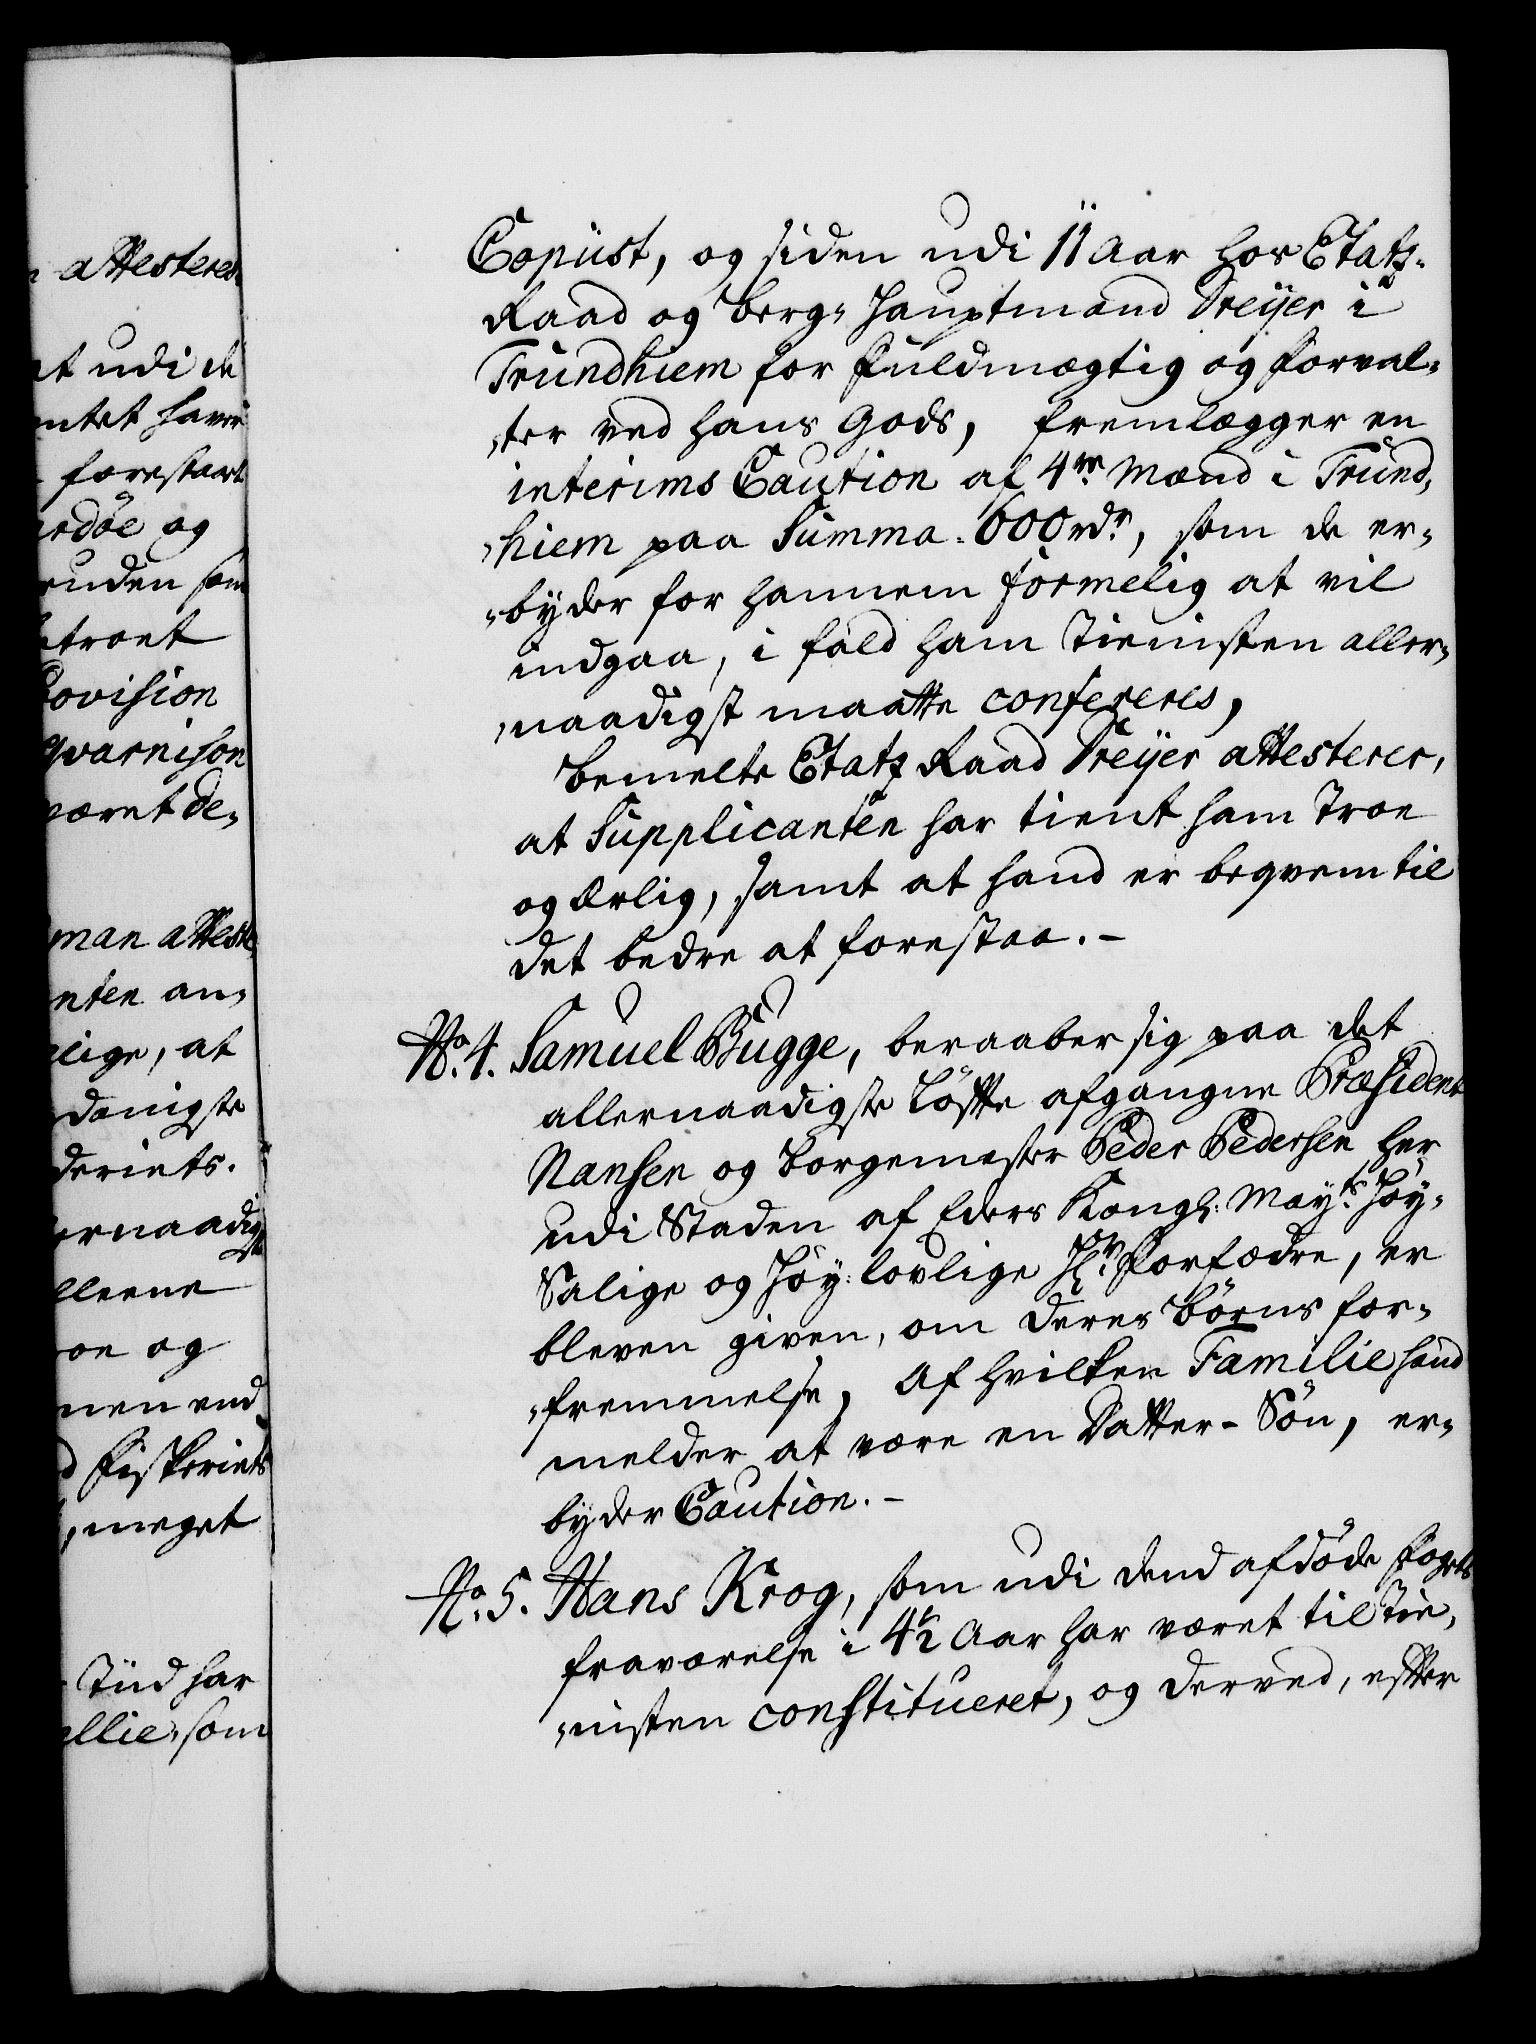 attesteres
t udi de
ntet haver
forestaaet
rdöe og
nden som
troet
rovision
gvarnison
været de-
man atteste
nten an-
lige, at
danigste
deriets.
ernaadigst
llerne
roe og
men end
d Fiskeriets
meget
Tiid har
ellie, som
Copiist, og siden udi 11 Aar hos Etatz-
Raad og Berg-Hauptmand Dreÿer i
Trundhiem for Fuldmægtig og Forval-
ter ved hans Gods, fremlegger en
interims Caution af 4re Mænd i Trund-
hiem paa Summa: 600 rdr, som de er-
byder for hannem formelig at vil
indgaa, i fald ham Tienisten aller-
naadigst maatte confereres,
Bemelte Etatz Raad Dreÿer attesterer,
at Supplicanten har tient ham Troe
og Ærlig, samt at hand er beqvem til
det bedre at forestaa.-
No. 4. Samuel Bugge, beraaber sig paa det
allernaadigste Löfte afgangne Præsident
Nansen og Borgemester Peder Pedersen her
udi Staden af Eders Kongl: Mayts Höy-
Salige og Höy-lovlige Hr Forfædre, er
bleven given, om deres Börns for-
fremmelse, af hvilken Familie hand
melder at være en Datter-Sön, er-
byder Caution.-
No. 5. Hans Krog, som udi dend afdöde Fogets
fraværelse i 4½ Aar har været til Tie-
nisten constitueret, og derved, efter